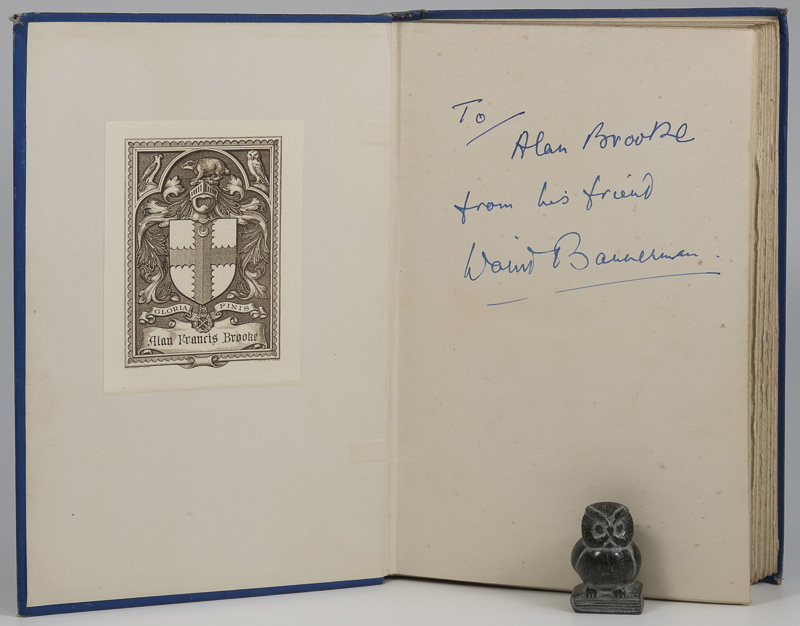 GLORIA FINIS
Alan Francis Brooke
To
Alan Brooke
from his friend
David Bannerman.